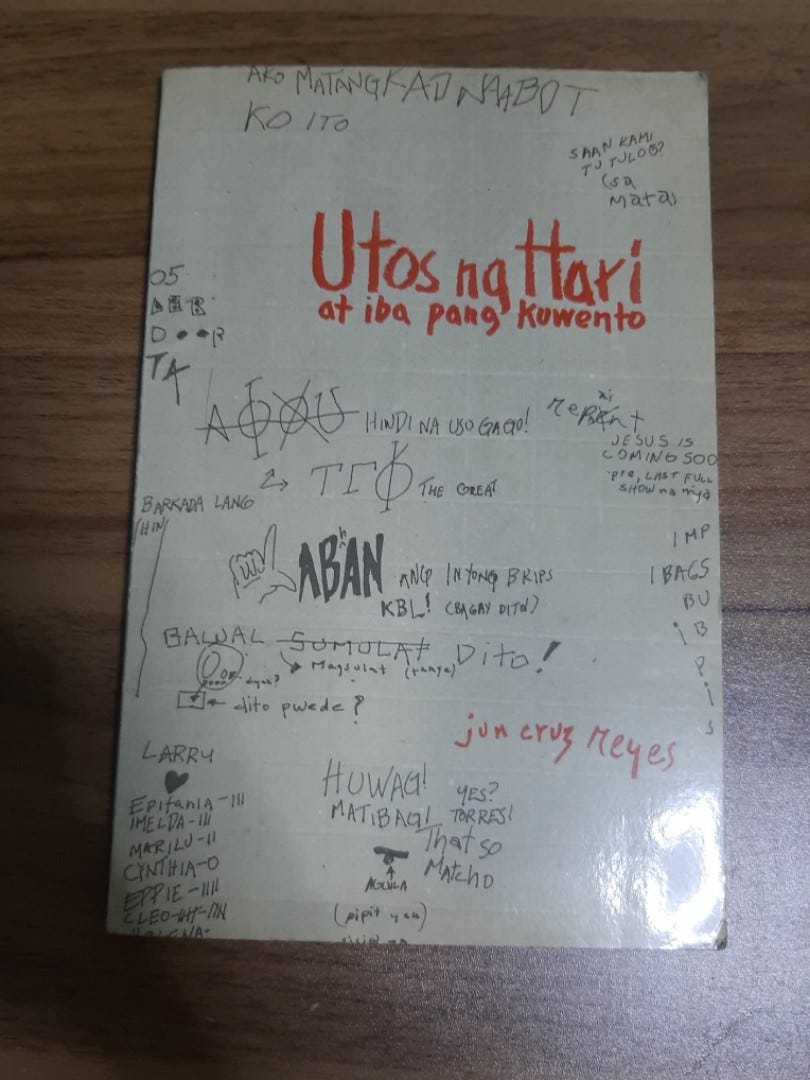 AKO MATANGKAD NAABOT
KO ITO
SAAN KAMI
TUTULOG?
(sa
mata)
Utos ng Hari
at iba pang kuwento
05
TA
ΑΦΧΩ HINDI NA USO GAGO!
repent
JESUS IS
COMING SOO
pre, LAST FULL
SHOW na niya
ΤΓΦ THE GREAT
BARKADA LANG
LABAN ANG INYONG BRIPS
KBL! (BAGAY DITO)
IMP
IBAGS
BU
iB
P
i
s
BAWAL SUMULAT Dito!
Magsulat (tanga)
dito pwede?
jun cruz reyes
LARRY
HUWAG! YES?
MATIBAG! TORRES!
That so
Matcho
AGUILA
(pipit yan)
Epifania-III
IMELDA-III
MARILU-II
CYNTHIA-O
EPPIE-IIII